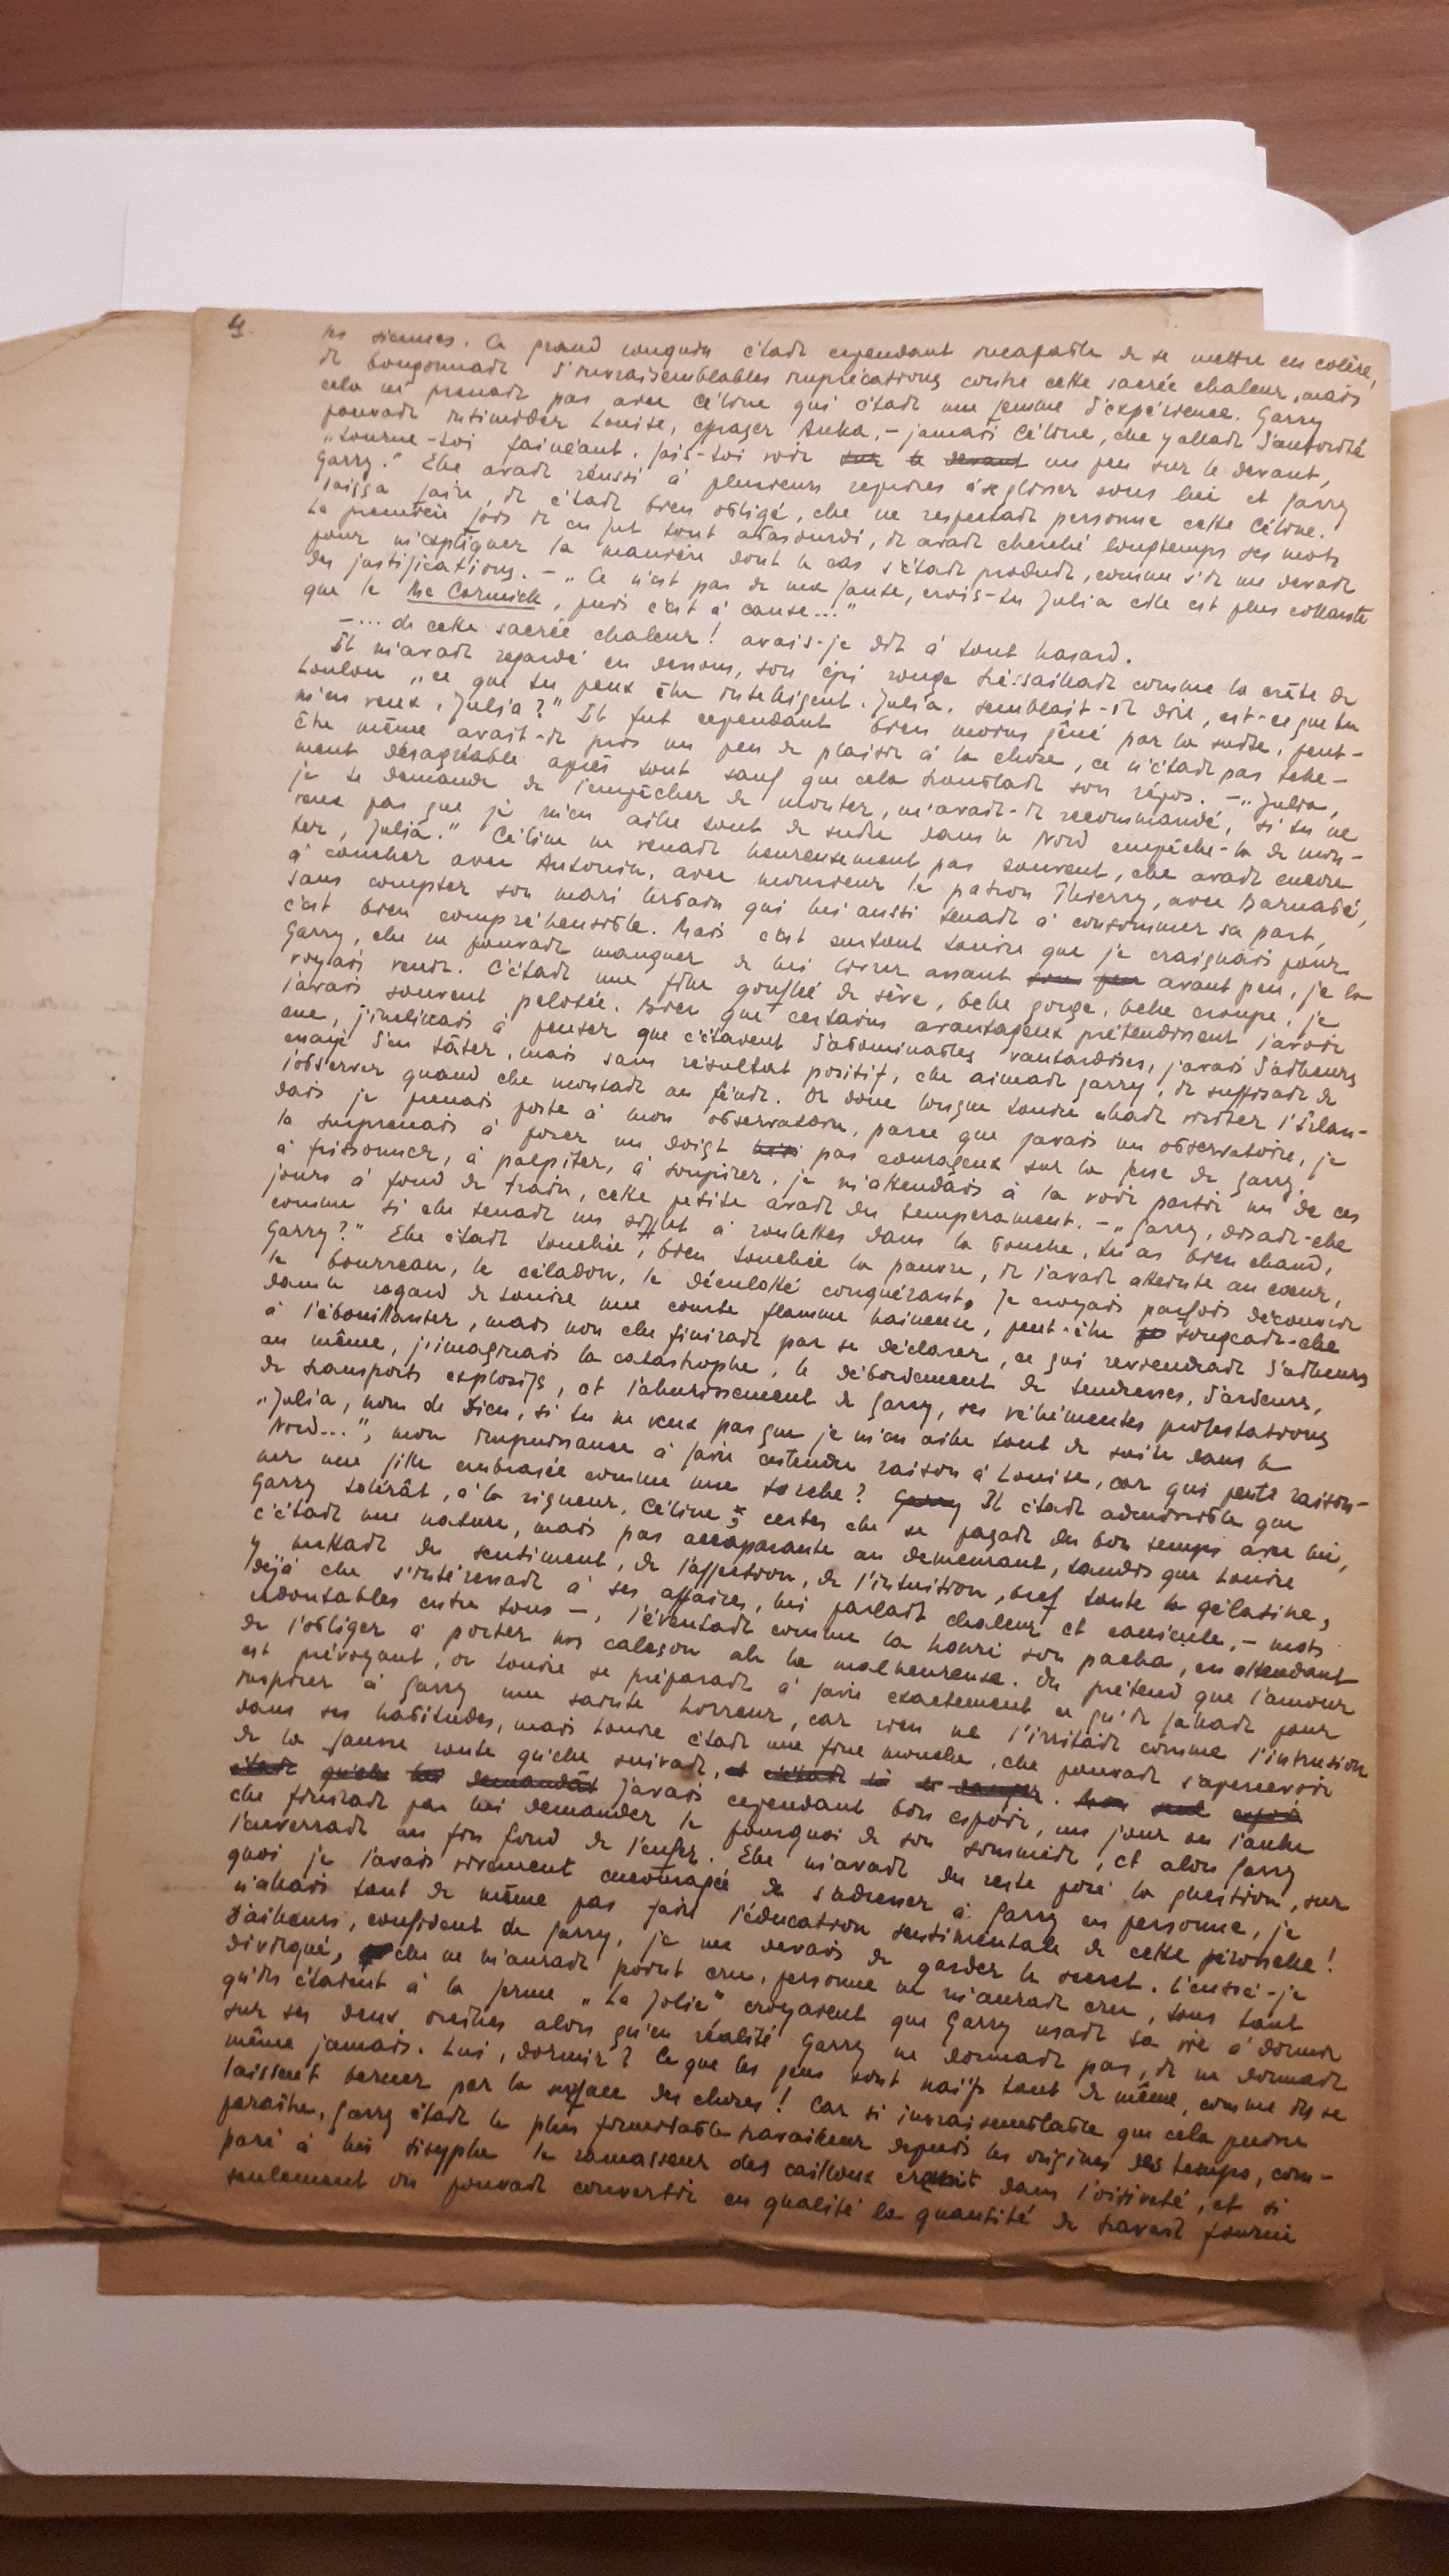 4.
les siennes. Ce grand rouquin était cependant incapable de se mettre en colère,
il bougonnait d'invraisemblables imprécations contre cette sacrée chaleur, mais
cela ne prenait pas avec Céline qui était une femme d'expérience. Garry
pouvait intimider Louise, Anka, – jamais Céline, elle y allait d'autorité
„tourne-toi fainéant, fais-toi voir sur le devant un peu sur le devant,
Garry." Elle avait réussi à plusieurs reprises à se glisser sous lui et Garry
laissa faire, il était bien obligé, elle ne respectait personne cette Céline.
La première fois il en fut tout abasourdi, il avait cherché longtemps ses mots
pour m'expliquer la manière dont le cas s'était produit, comme s'il me devait
des justifications. – „Ce n'est pas de ma faute, crois-tu Julia elle est plus collante
que le Mc Cormick, puis c'est à cause..."
– ... de cette sacrée chaleur ! avais-je dit à tout hasard.
Il m'avait regardé en dessous, son épi rouge tressaillait comme la crête de
„ce que tu peux être intelligent, Julia, semblait-il dire, est-ce que tu
m'en veux, Julia ?" Il fut cependant bien moins gêné par la suite, peut-
être même avait-il pris un peu de plaisir à la chose, ce n'était pas telle-
ment désagréable après tout sauf que cela troublait son repos. – „Julia,
je te demande de l'empêcher de monter, m'avait-il recommandé, si tu ne
veux pas que je m'en aille tout de suite dans le Nord empêche-la de mon-
ter, Julia." Céline ne venait heureusement pas souvent, elle avait encore
à coucher avec Antonin, avec monsieur le patron Thierry, avec Barnabé,
sans compter son mari Urbain qui lui aussi tenait à consommer sa part,
c'est bien compréhensible. Mais c'est surtout Louise que je craignais pour
Garry, elle ne pouvait manquer de lui livrer assaut sous peu avant peu, je la
voyais venir. C'était une fille gonflée de sève, belle gorge, belle croupe, je
l'avais souvent pelotée. Bien que certains avantageux prétendissent l'avoir
eue, j'inclinais à penser que c'étaient d'abominables vantardises, j'avais d'ailleurs
essayé d'en tâter, mais sans résultat positif, elle aimait Garry, il suffisait de
l'observer quand elle montait au fenil. Or donc lorsque Louise allait visiter l'Irlan-
dais je prenais poste à mon observatoire, parce que j'avais un observatoire, je
la surprenais à poser un doigt pas courageux sur la joue de Garry,
à frissonner, à palpiter, à soupirer, je m'attendais à la voir partir un de ces
jours à fond de train, cette petite avait du tempérament. – „Garry, disait-elle
comme si elle tenait un sifflet à roulettes dans la bouche, tu as bien chaud,
Garry ?" Elle était touchée, bien touchée la pauvre, il l'avait atteinte au cœur,
le bourreau, le céladon, le déculotté conquérant, je croyais parfois découvrir
dans le regard de Louise une courte flamme haineuse, peut-être songeait-elle
à l'ébouillanter, mais non elle finirait par se déclarer, ce qui reviendrait d'ailleurs
au même, j'imaginais la catastrophe, le débordement de tendresses, d'ardeurs,
de transports explosifs, et l'ahurissement de Garry, ses véhémentes protestations
„Julia, nom de Dieu, si tu ne veux pas que je m'en aille tout de suite dans le
Nord...", mon impuissance à faire entendre raison à Louise, car qui peut raison-
ner une fille embrasée comme une torche ? Garry Il était admissible que
Garry tolérât, à la rigueur, Céline ; certes elle se payait du bon temps avec lui,
c'était une nature, mais pas accaparante au demeurant, tandis que Louise
y mettait du sentiment, de l'affection, de l'intuition, bref toute la gélatine,
déjà elle s'intéressait à ses affaires, lui parlait chaleur et canicule, – mots
redoutables entre tous –, l'éventait comme la houri son pacha, en attendant
de l'obliger à porter un caleçon ah la malheureuse. On prétend que l'amour
est prévoyant, or Louise se préparait à faire exactement ce qu'il fallait pour
inspirer à Garry une sainte horreur, car rien ne l'irritait comme l'intrusion
dans ses habitudes, mais Louise était une fine mouche, elle pouvait s'apercevoir
de la fausse route qu'elle suivait, et c'était là le danger. Mon seul espoir
était qu'elle lui demandât j'avais cependant bon espoir, un jour ou l'autre
elle finirait par lui demander le pourquoi de son sommeil, et alors Garry
l'enverrait au fin fond de l'enfer. Elle m'avait du reste posé la question, sur
quoi je l'avais vivement encouragée de s'adresser à Garry en personne, je
n'allais tout de même pas faire l'éducation sentimentale de cette péronnelle !
D'ailleurs, confident de Garry, je me devais de garder le secret. L'eussé-je
divulgué, elle ne m'aurait point cru, personne ne m'aurait cru, tous tant
qu'ils étaient à la ferme „La Jolie" croyaient que Garry usait sa vie à dormir
sur ses deux oreilles alors qu'en réalité Garry ne dormait pas, il ne dormait
même jamais. Lui, dormir ? Ce que les gens sont naïfs tout de même, comme ils se
laissent berner par la surface des choses ! Car si invraisemblable que cela puisse
paraître, Garry était le plus formidable travailleur depuis les origines des temps, com-
paré à lui Sisyphe le ramasseur des cailloux dans l'oisiveté, et si
seulement on pouvait convertir en qualité la quantité de travail fourni